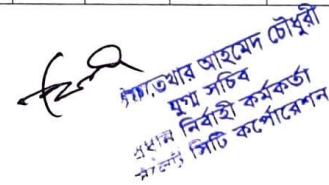 ইফতেখার আহমেদ চৌধুরী
যুগ্ম সচিব
প্রধান নির্বাহী কর্মকর্তা
সিটি কর্পোরেশন